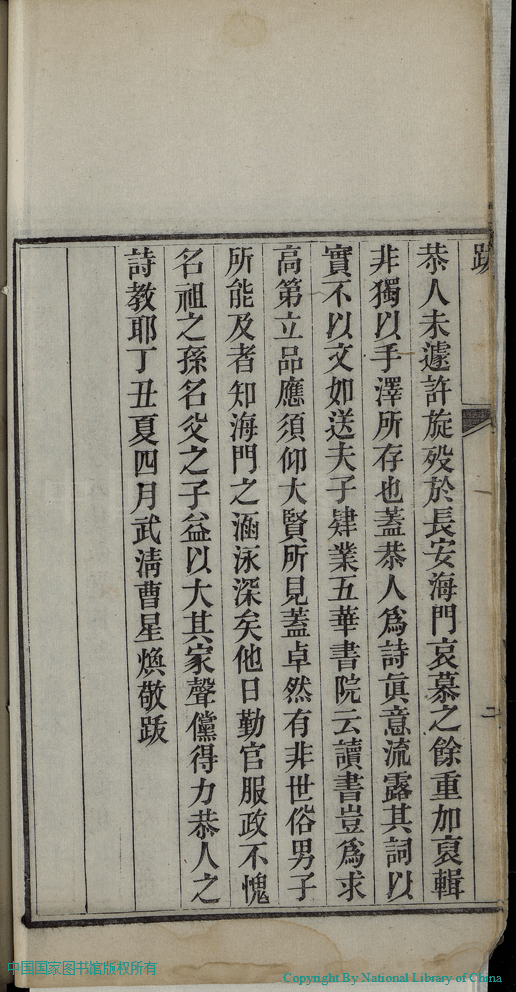 跋
二
恭人未遽許旋歿於長安海門哀慕之餘重加裒輯
非獨以手澤所存也蓋恭人爲詩眞意流露其詞以
實不以文如送夫子肄業五華書院云讀書豈爲求
高第立品應須仰大賢所見蓋卓然有非世俗男子
所能及者知海門之涵泳深矣他日勤官服政不愧
名祖之孫名父之子益以大其家聲儻得力恭人之
詩教耶丁丑夏四月武清曹星煥敬跋
中国国家图书馆版权所有
Copyright By National Library of China